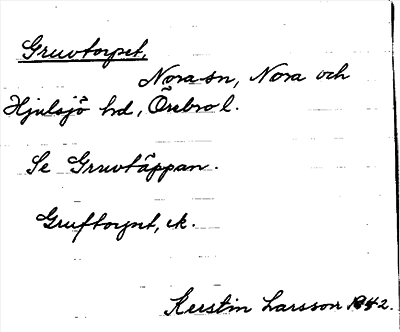 Gruvtorpet.
Nora sn, Nora och
Hjulsjö hd, Örebro l.
Se Gruvtäppan.
Gruftorpet, ek.
Kerstin Larsson 1942.